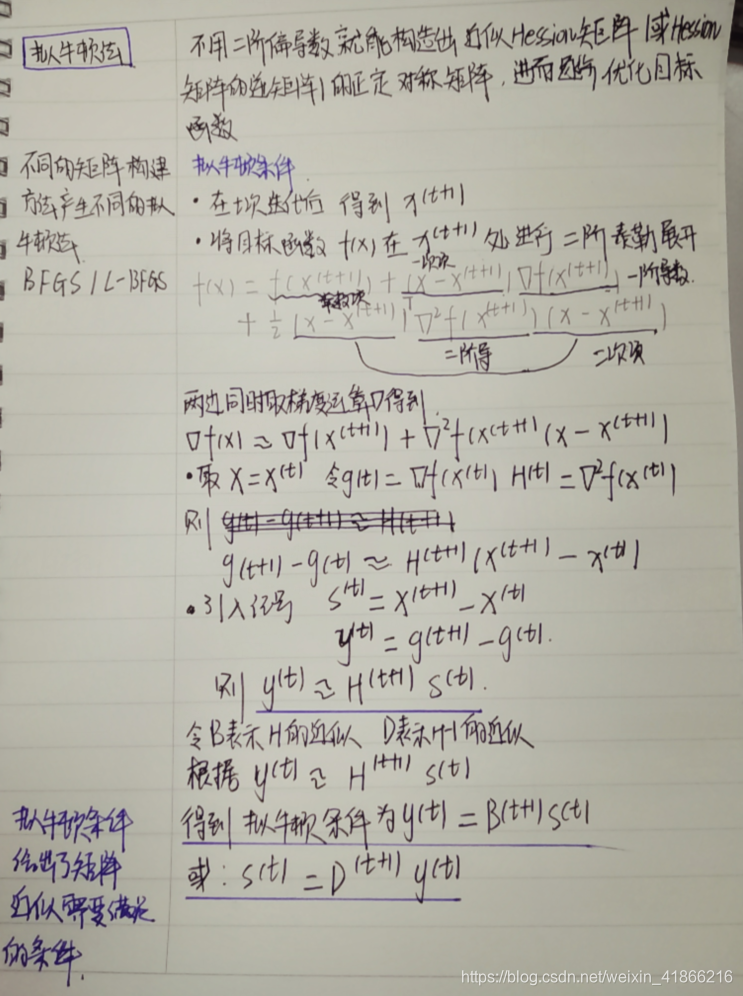 拟牛顿法
不用二阶偏导数就能构造出近似Hession矩阵(或Hession
矩阵的逆矩阵)的正定对称矩阵,进而 优化目标
函数
不同的矩阵构建
方法产生不同的拟
牛顿法
BFGS / L-BFGS
拟牛顿条件
· 在t次迭代后 得到 x^(t+1)
· 将目标函数 f(x) 在 x^(t+1) 处进行 二阶泰勒展开
f(x) = f(x^(t+1)) + (x - x^(t+1))^T ∇f(x^(t+1))
常数项 一次项 一阶导数.
+ 1/2 (x - x^(t+1))^T ∇²f(x^(t+1)) (x - x^(t+1))
二阶导 二次项
两边同时取梯度运算∇得到
∇f(x) ≈ ∇f(x^(t+1)) + ∇²f(x^(t+1) (x - x^(t+1))
· 取 X = X^(t) 令g(t) = ∇f(x^(t)) H(t) = ∇²f(x^(t))
则 g(t) - g(t+1) ≈ H(t+1)
g(t+1) - g(t) ≈ H(t+1) (x^(t+1) - x^(t))
· 引入记号 S^(t) = X^(t+1) - X^(t)
y^(t) = g(t+1) - g(t).
则 y(t) ≈ H^(t+1) S(t).
令B表示H的近似 D表示H-1的近似
根据 y(t) ≈ H^(t+1) S(t)
得到 拟牛顿条件为 y(t) = B(t+1) S(t)
或: S(t) = D^(t+1) y(t)
拟牛顿条件
给出了矩阵
近似需要满足
的条件.
https://blog.csdn.net/weixin_41866216